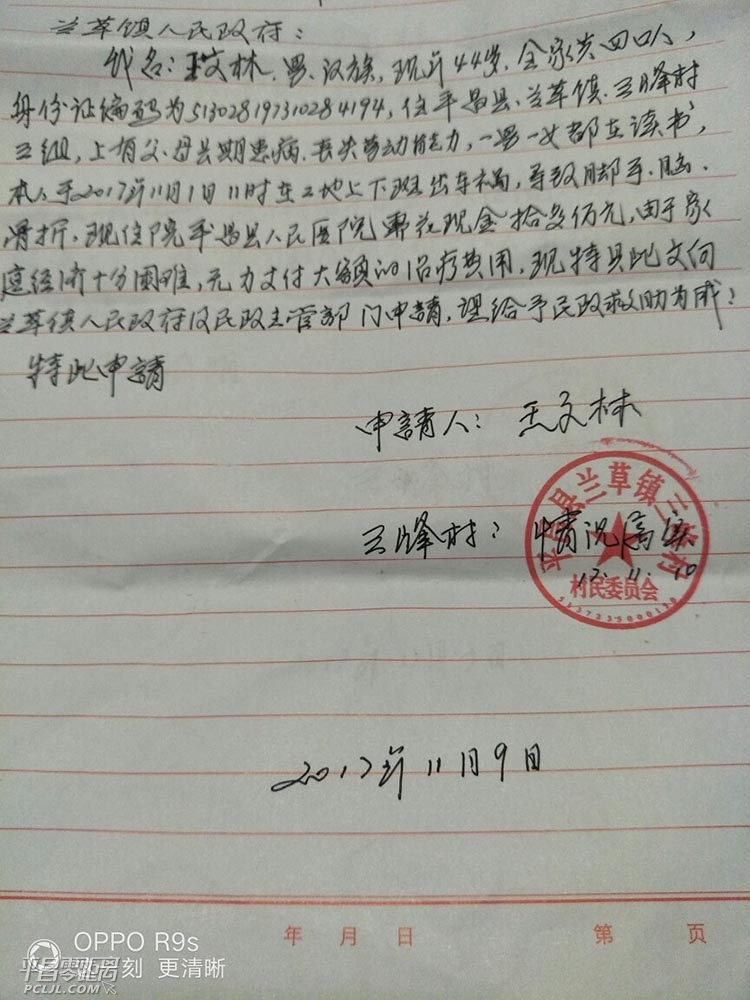 兰草镇人民政府:
我名:王文林.男、汉族,现年44岁.全家共四口人,
身份证编码为513028197310284194,住平昌县.兰草镇.三峰村
三组,上有父.母长期患病.丧失劳动能力,一男一女都在读书,
本人于2017年11月1日11时在工地上下班出车祸,导致脚手.脑.
滑折,现住院平昌县人民医院需花现金拾多万元,由于家
庭经济十分困难,无力支付大额的治疗费用,现特具此文向
兰草镇人民政府及民政主管部门申請,望给予民政救助为感!
特此申請
申請人:王文林
三峰村:情况属实
17.11.10
平昌县兰草镇三峰村
村民委员会
2017年11月9日
年 月 日 第 页
OPPO R9s
这一刻 更清晰
平昌零距离
PCLJL.COM